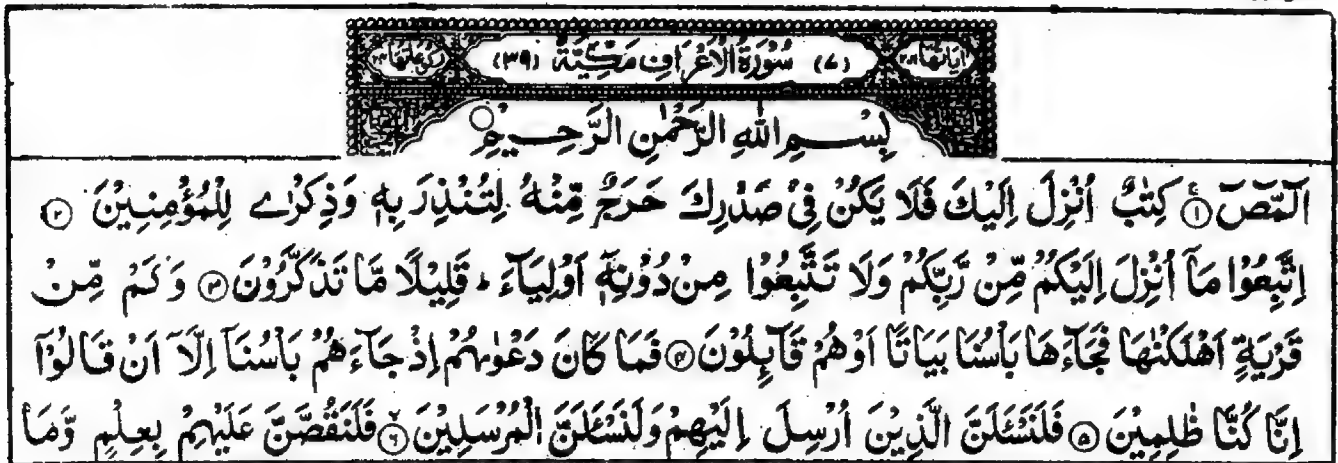 اٰيَاتُهَا ٢٠٦ (٧) سُوْرَةُ الْاَعْرَافِ مَكِّيَّةٌ (٣٩) رُكُوْعَاتُهَا ٢٤
بِسْمِ اللّٰهِ الرَّحْمٰنِ الرَّحِيْمِ
الٓمّٓصٓ ۝١ كِتٰبٌ اُنْزِلَ اِلَيْكَ فَلَا يَكُنْ فِيْ صَدْرِكَ حَرَجٌ مِّنْهُ لِتُنْذِرَ بِهٖ وَذِكْرٰے لِلْمُؤْمِنِيْنَ ۝٢
اِتَّبِعُوْا مَآ اُنْزِلَ اِلَيْكُمْ مِّنْ رَّبِّكُمْ وَلَا تَتَّبِعُوْا مِنْ دُوْنِهٖٓ اَوْلِيَآءَ ؕ قَلِيْلًا مَّا تَذَكَّرُوْنَ ۝٣ وَكَمْ مِّنْ
قَرْيَةٍ اَهْلَكْنٰهَا فَجَآءَهَا بَاْسُنَا بَيَاتًا اَوْ هُمْ قَآئِلُوْنَ ۝٤ فَمَا كَانَ دَعْوٰىهُمْ اِذْ جَآءَهُمْ بَاْسُنَآ اِلَّآ اَنْ قَالُوْٓا
اِنَّا كُنَّا ظٰلِمِيْنَ ۝٥ فَلَنَسْئَلَنَّ الَّذِيْنَ اُرْسِلَ اِلَيْهِمْ وَلَنَسْئَلَنَّ الْمُرْسَلِيْنَ ۝٦ فَلَنَقُصَّنَّ عَلَيْهِمْ بِعِلْمٍ وَّمَا